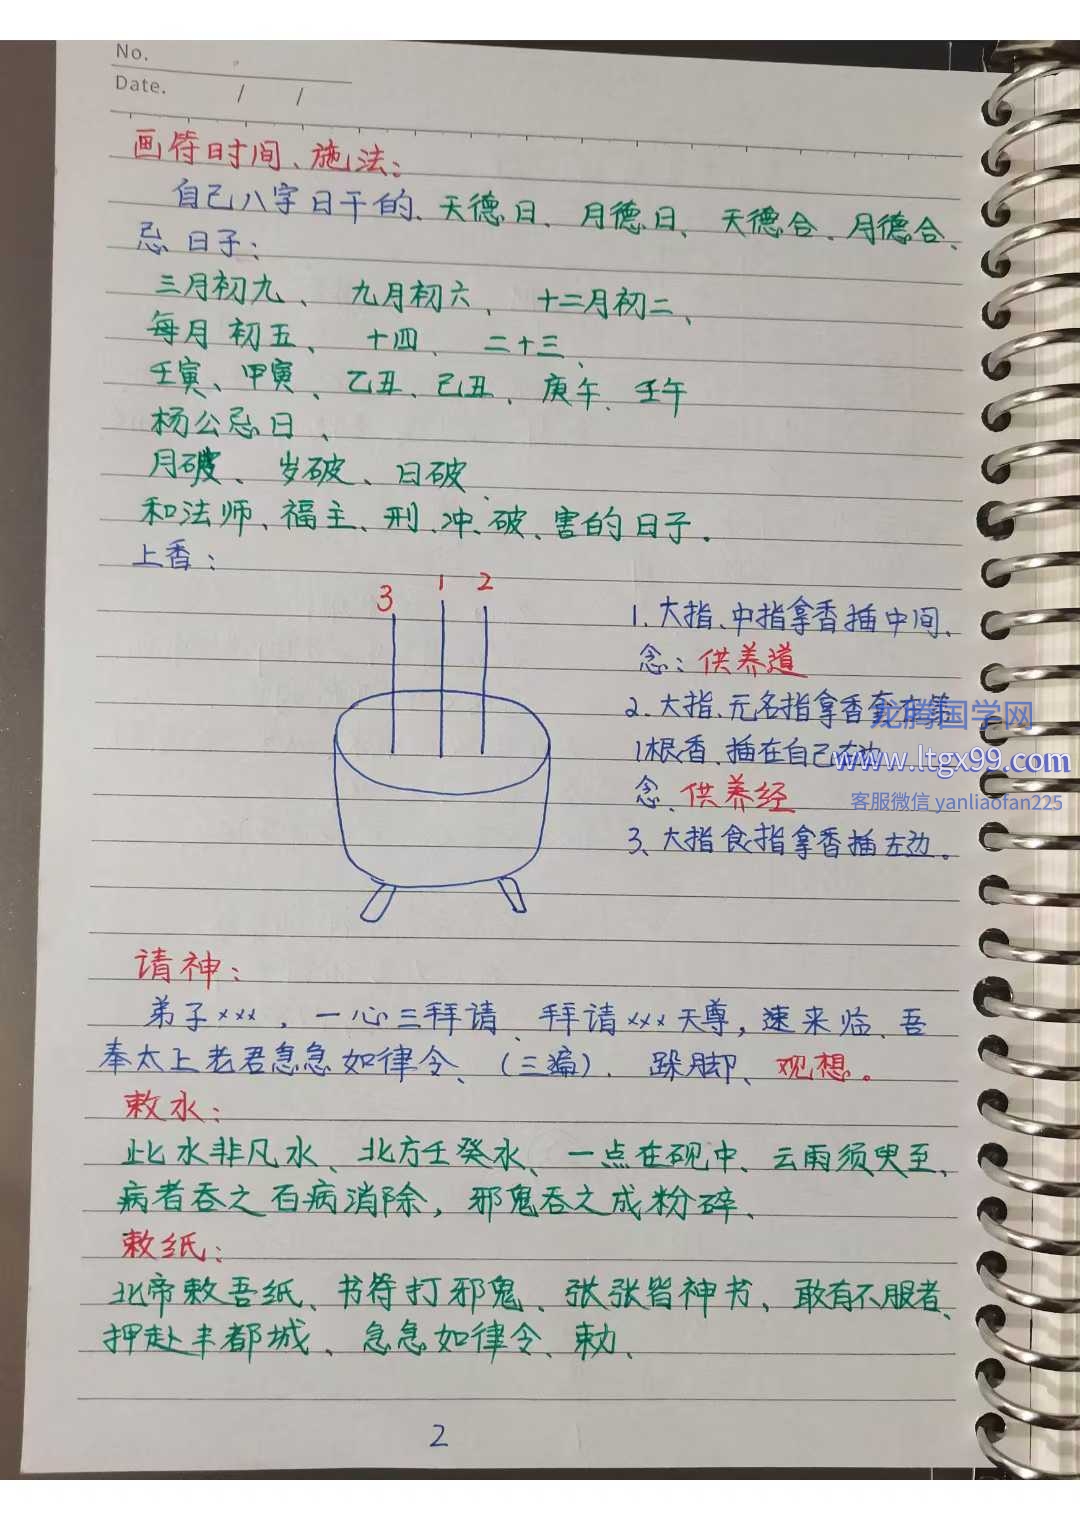 No.
Date.
画符时间、施法：
自己八字日干的、天德日、月德日、天德合、月德合、
忌日子：
三月初九、九月初六、十二月初二、
每月初五、十四、二十三、
壬寅、甲寅、乙丑、己丑、庚午、壬午
杨公忌日、
月破、岁破、日破、
和法师、福主、刑、冲、破、害的日子。
上香：
3 1 2
1、大指、中指拿香插中间、
念：供养道
2、大指、无名指拿香
1根香、插在自己右边
念、供养经
3、大指食指拿香插左边。
龙腾国学网
www.ltgx99.com
客服微信 yanliaofan225
请神：
弟子×××，一心三拜请、拜请×××天尊，速来临、吾
奉太上老君急急如律令、（三遍）、跺脚、观想。
敕水：
此水非凡水、北方壬癸水、一点在砚中、云雨须臾至、
病者吞之百病消除，邪鬼吞之成粉碎、
敕纸：
北帝敕吾纸、书符打邪鬼、张张皆神书、敢有不服者、
押赴丰都城、急急如律令、敕、
2